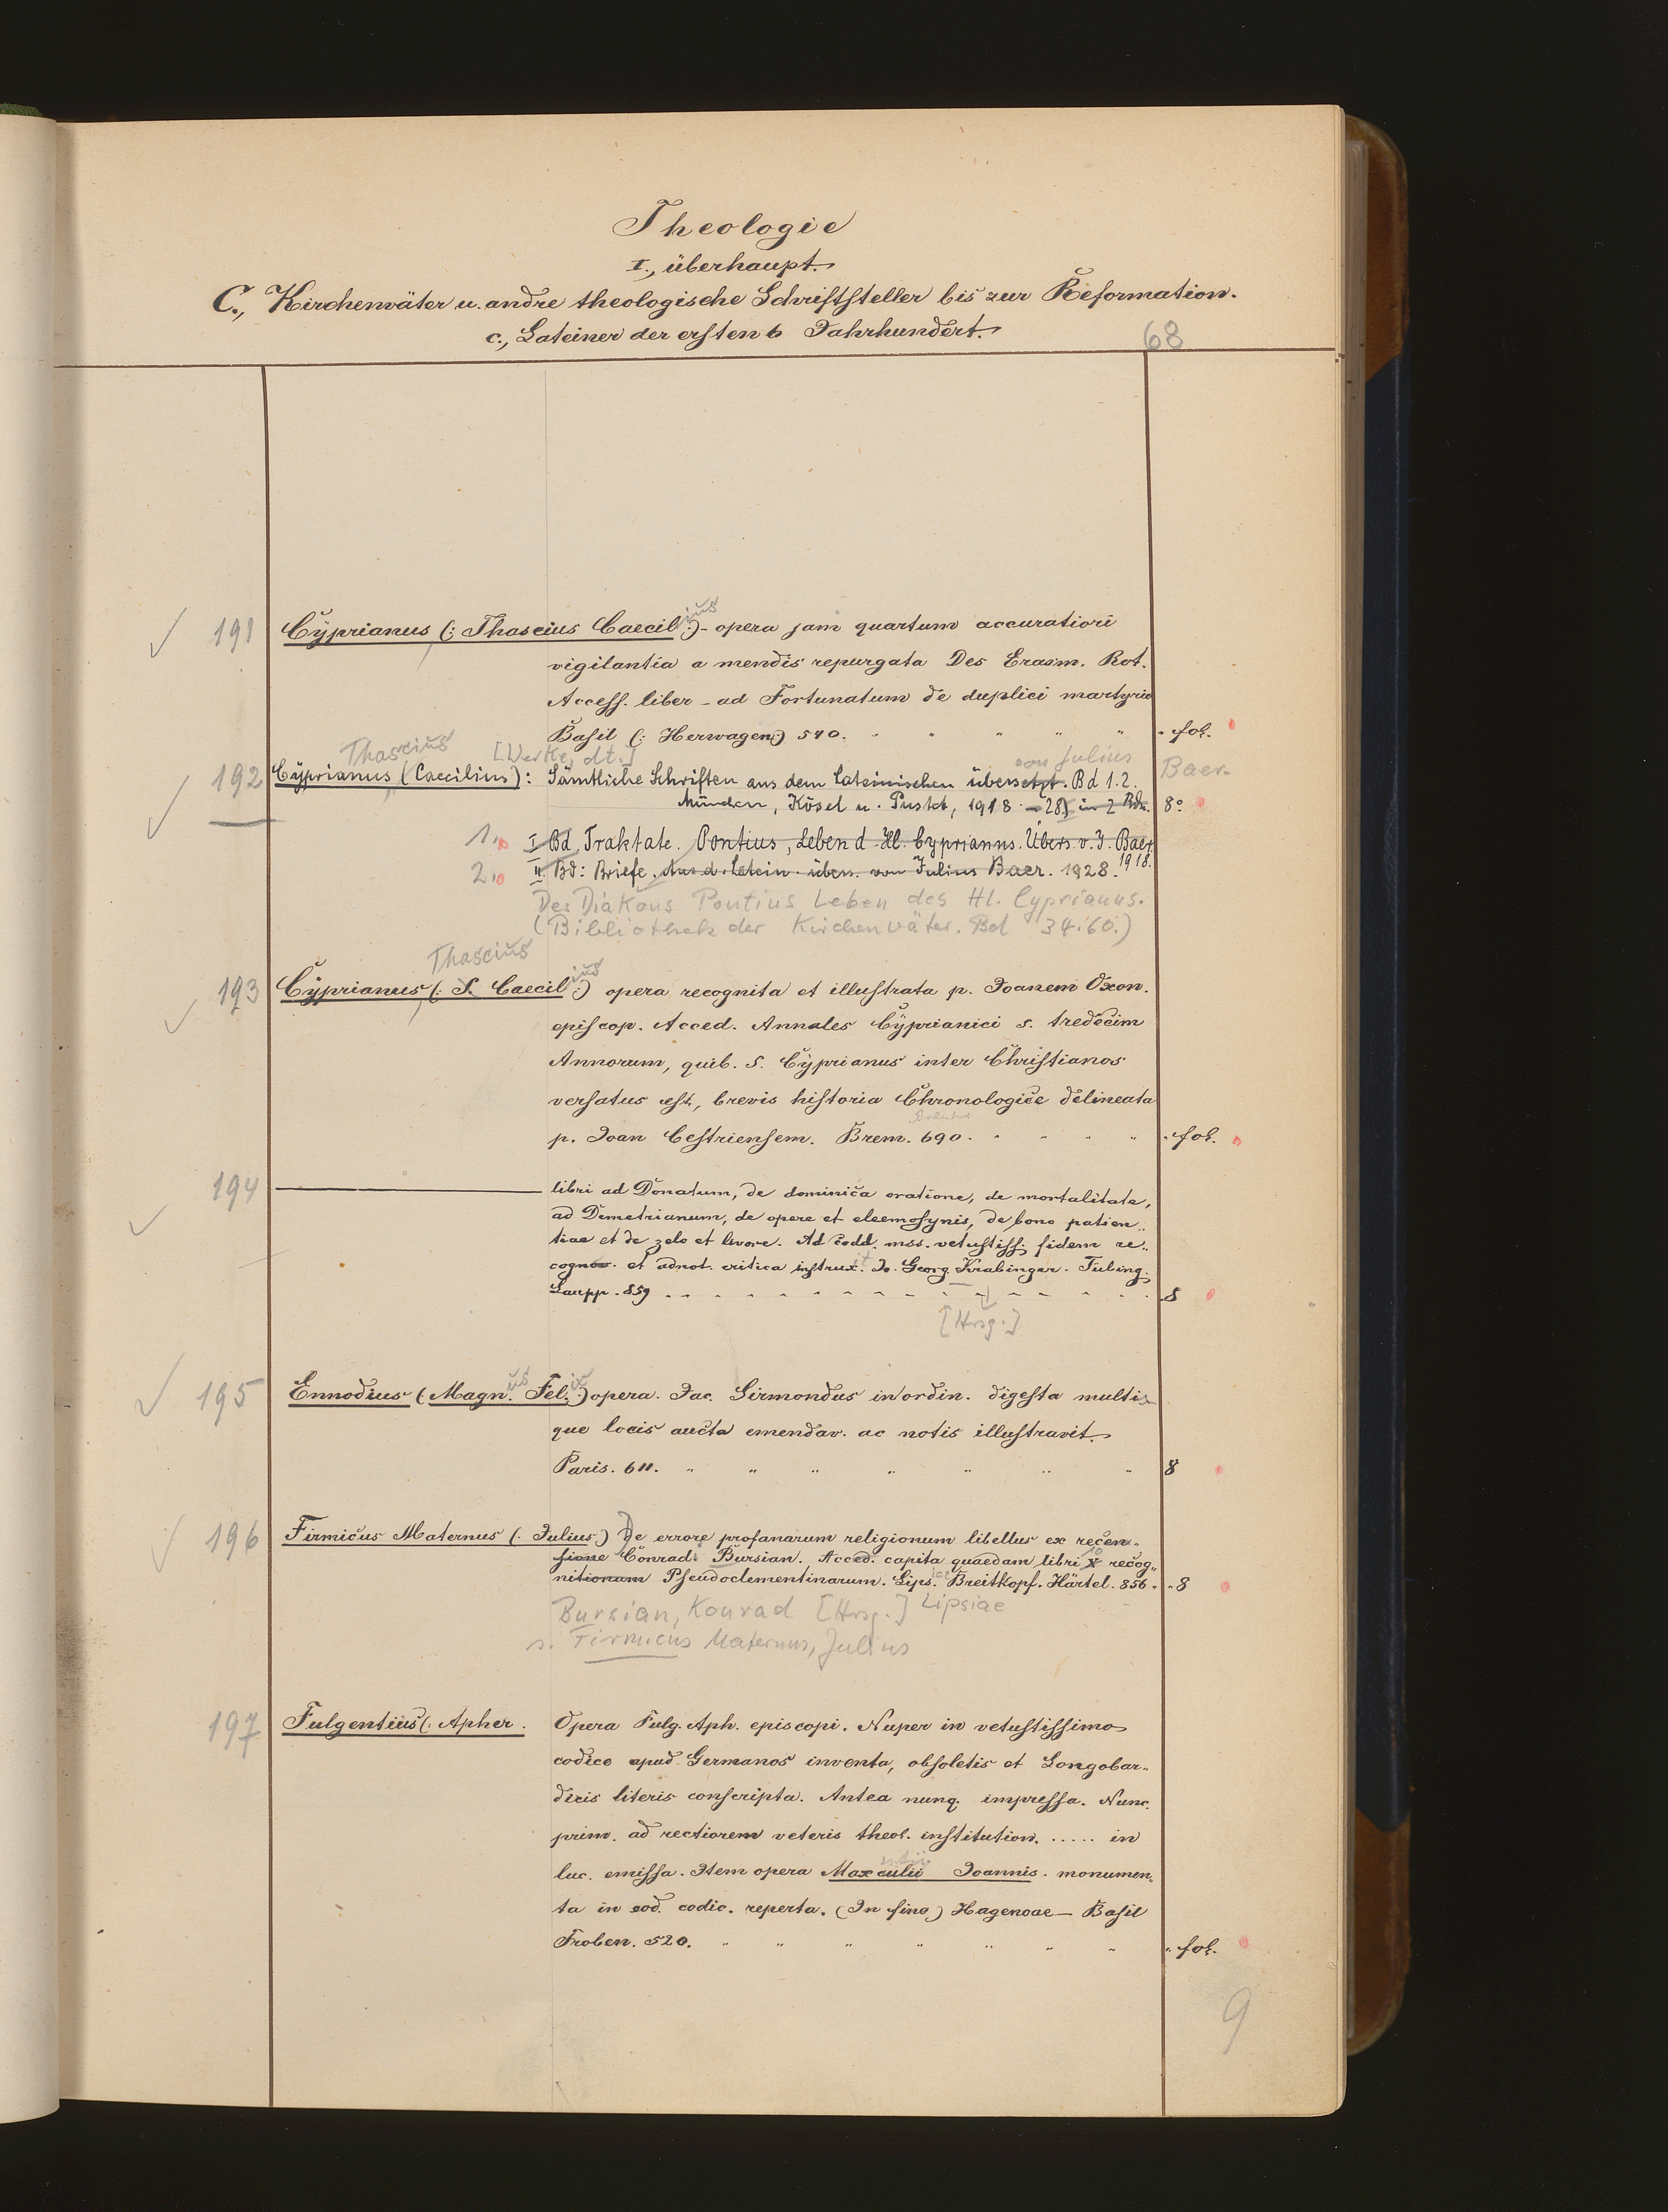 Theologie
I., überhaupt.
C., Kirchenväter u. andre theologische Schriftsteller bis zur Reformation.
c., Lateiner der ersten 6 Jahrhundert.
68
191 Cyprianus (: Thascius Caecil ius :) - opera jam quartum accuratiori
vigilantia a mendis repurgata Des Erasm. Rot.
Access. liber - ad Fortunatum de duplici martyrio
Basil (: Herwagen :) 540. " " " " " fol.
Thascius [Werke, dt.] von Julius
192 Cyprianus (Caecilius): Sämtliche Schriften aus dem Lateinischen übersetzt. Bd 1.2. Baer.
München, Kösel u. Pustet, 1918 - 28) in 2 Bdn. 8°
1. I Bd Traktate. Pontius, Leben d. Hl. Cyprianus. Übers. v. J. Baer
1918.
2. II. Bd: Briefe. Aus d. Latein. übers. von Julius Baer. 1928.
Des Diakons Pontius Leben des Hl. Cyprianus.
(Bibliothek der Kirchenväter. Bd 34.60.)
Thascius
193 Cyprianus (: S. Caecil ius :) opera recognita et illustrata p. Joanem Oxon.
episcop. Acced. Annales Cyprianici s. tredecim
Annorum, quib. S. Cyprianus inter Christianos
versatus est, brevis historia Chronologice delineata
p. Joan Cestriensem. Brem. 690. " " " " fol.
194 libri ad Donatum, de dominica oratione, de mortalitate,
ad Demetrianum, de opere et eleemosynis, de bono patien..
tiae et de zelo et livore. Ad codd. mss. vetustiss. fidem re..
cognov. et adnot. critica instrux. Jo. Georg. Krabinger. Tübing.
Laupp. 859 8
[Hrsg.]
195 Ennodius (: Magn. us Fel. ix :) opera. Jac. Sirmondus in ordin. digesta multis
que locis aucta emendav. ac notis illustravit.
Paris. 611. " " " " " " " 8
196 Firmicus Maternus (: Julius :) De errore profanarum religionum libellus ex recen..
sione Conrad. Bursian. Acced. capita quaedam libri X 10 recog..
nitionum Pseudoclementinarum. Lips. Breitkopf. Härtel. 856. " 8
Bursian, Konrad [Hrsg.] Lipsiae
s. Firmicus Maternus, Julius
197 Fulgentius (: Apher. Opera Fulg. Aph. episcopi. Nuper in vetustissimo
codice apud Germanos inventa, obsoletis et Longobar..
dicis literis conscripta. Antea nunq. impressa. Nunc
prim. ad rectiorem veteris theol. institution. ..... in
luc. emissa. Item opera Maxculii Joannis. monumen..
ta in eod. codic. reperta. (In fine) Hagenoae - Basil
Froben. 520. " " " " " " " fol.
9